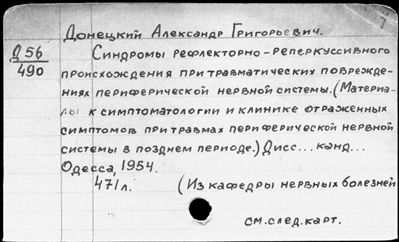 Донецкий Александр Григорьевич.
Д 56
490
Синдромы рефлекторно-реперкуссивного
происхождения при травматических поврежде-
ниях периферической нервной системы. (Материа-
лы к симптоматологии и клинике отраженных
симптомов при травмах периферической нервной
системы в позднем периоде.) Дисс... канд...
Одесса, 1954.
471 л. (Из кафедры нервных болезней
см. след. карт.